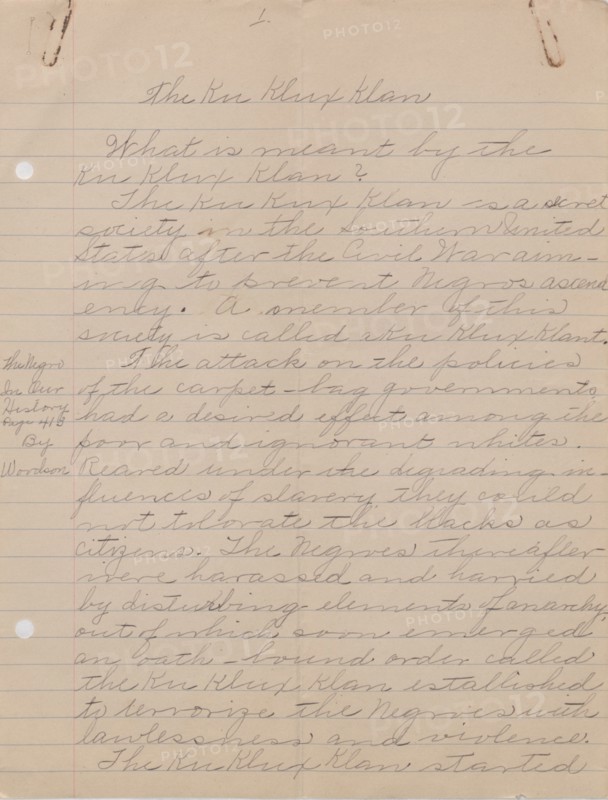 1.
The Ku Klux Klan
What is meant by the
Ku Klux Klan?
The Ku Kux Klan is a secret
society in the Southern United
States after the Civil War aim-
ing to prevent Negros ascend
ency. A member of this
society is called a Ku Klux Klant.
The attack on the policies
of the carpet-bag governments
had a desired effect among the
poor and ignorant whites.
Reared under the degrading in-
fluences of slavery they could
not tolorate the blacks as
citizens. The Negroes thereafter
were harassed and harried
by disturbing elements of anarchy,
out of which soon emerged
an oath-bound order called
the Ku Klux Klan established
to terrorize the Negroes with
lawlessness and violence.
The Ku Klux Klan started
The Negro
In Our
History
Page 418
By
Wordson
PHOTO12